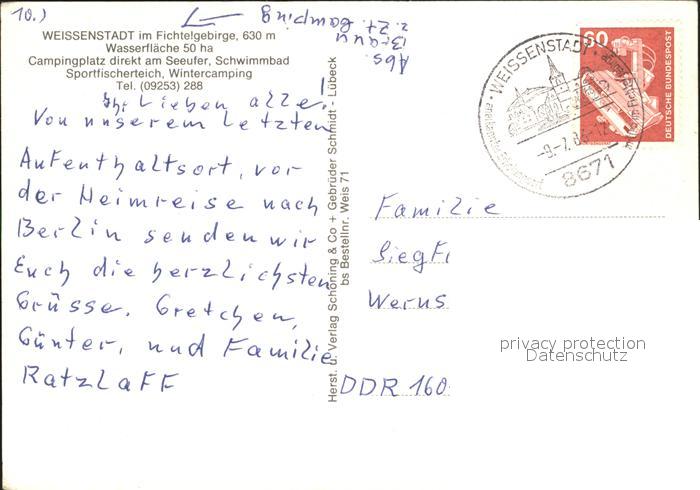 10.)
Abs.
Braun
z. Zt. Camping
WEISSENSTADT im Fichtelgebirge, 630 m
Wasserfläche 50 ha
Campingplatz direkt am Seeufer, Schwimmbad
Sportfischerteich, Wintercamping
Tel. (09253) 288
Ihr Lieben alle!
Von unserem letzten
Aufenthaltsort, vor
der Heimreise nach
Berlin senden wir
Euch die herzlichsten
Grüsse. Gretchen,
Günter, und Familie
Ratzlaff
Herst. u. Verlag Schöning & Co + Gebrüder Schmidt - Lübeck
bs Bestellnr. Weis 71
WEISSENSTADT
8671
60
DEUTSCHE BUNDESPOST
Familie
Siegfr
Werns
DDR 160
privacy protection
Datenschutz